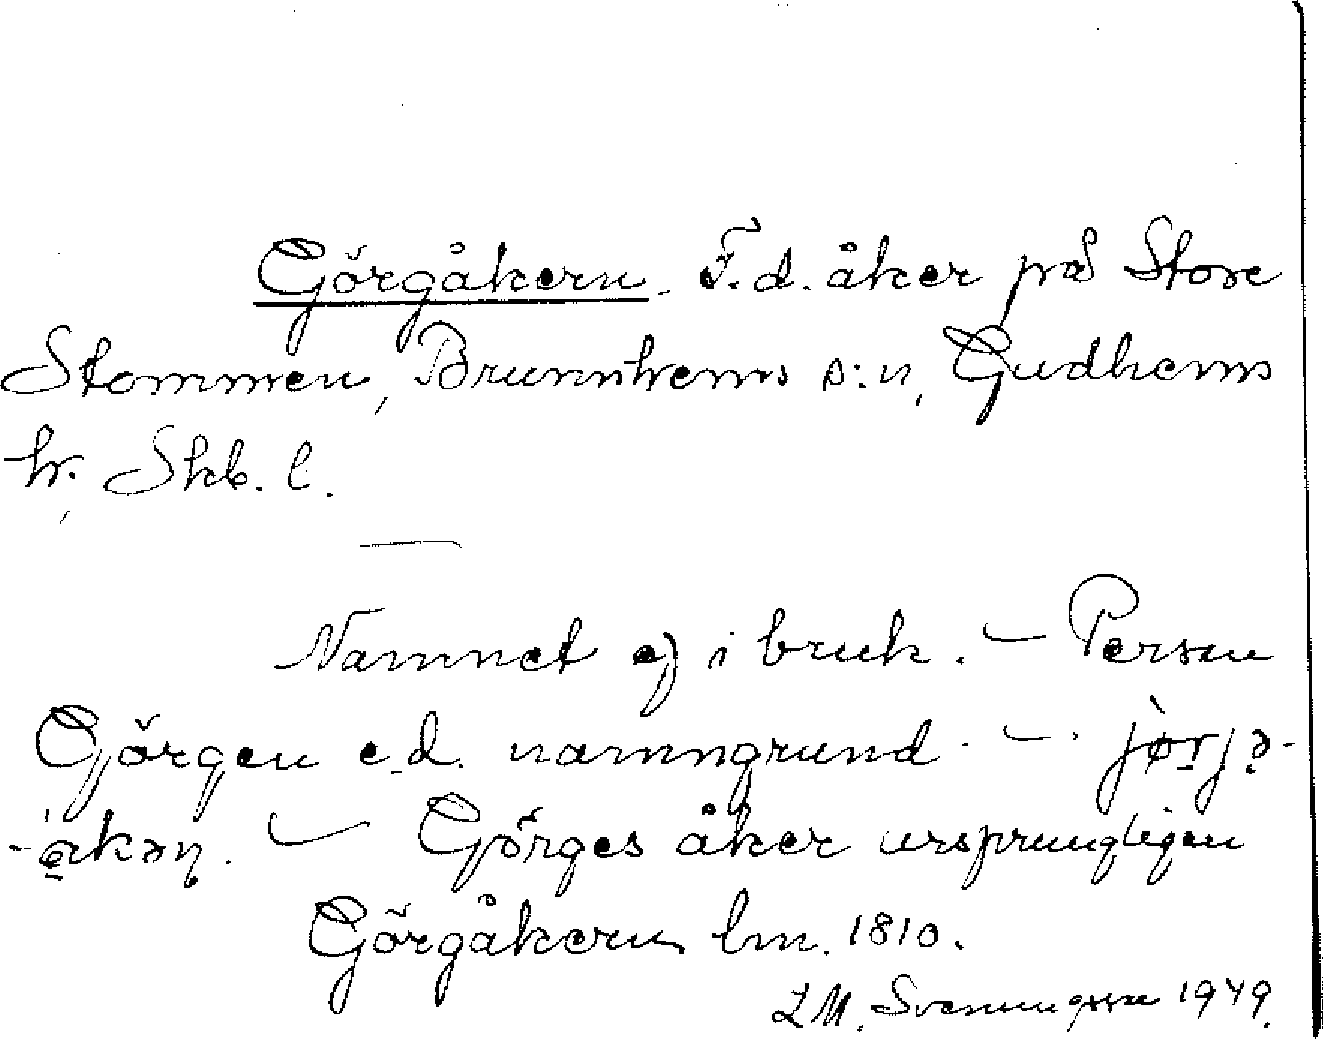 Görgåkern. F.d. åker på Store
Stommen, Brunnhems s:n, Gudhems
hr, Skb. l.
Namnet ej i bruk. – Persnu
Görgen e.d. namngrund. –
– Görges åker ursprungligen
Görgåkern lm. 1810.
Z M. Svenungsson 1949.